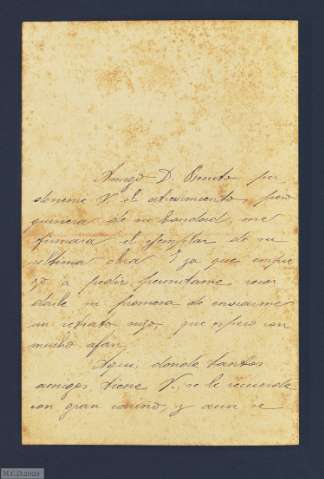 Amigo D. Benito per-
doneme V. el atrevimiento, pero
quisiera de su bondad, me
firmara el ejemplar de su
última obra. Y ya que empie-
zo a pedir, permítame recor-
darle su promesa de enviarme
un retrato suyo, que espero con
mucho afan.
Aqui, donde tantos
amigos tiene V. se le recuerda
con gran cariño, y aun se